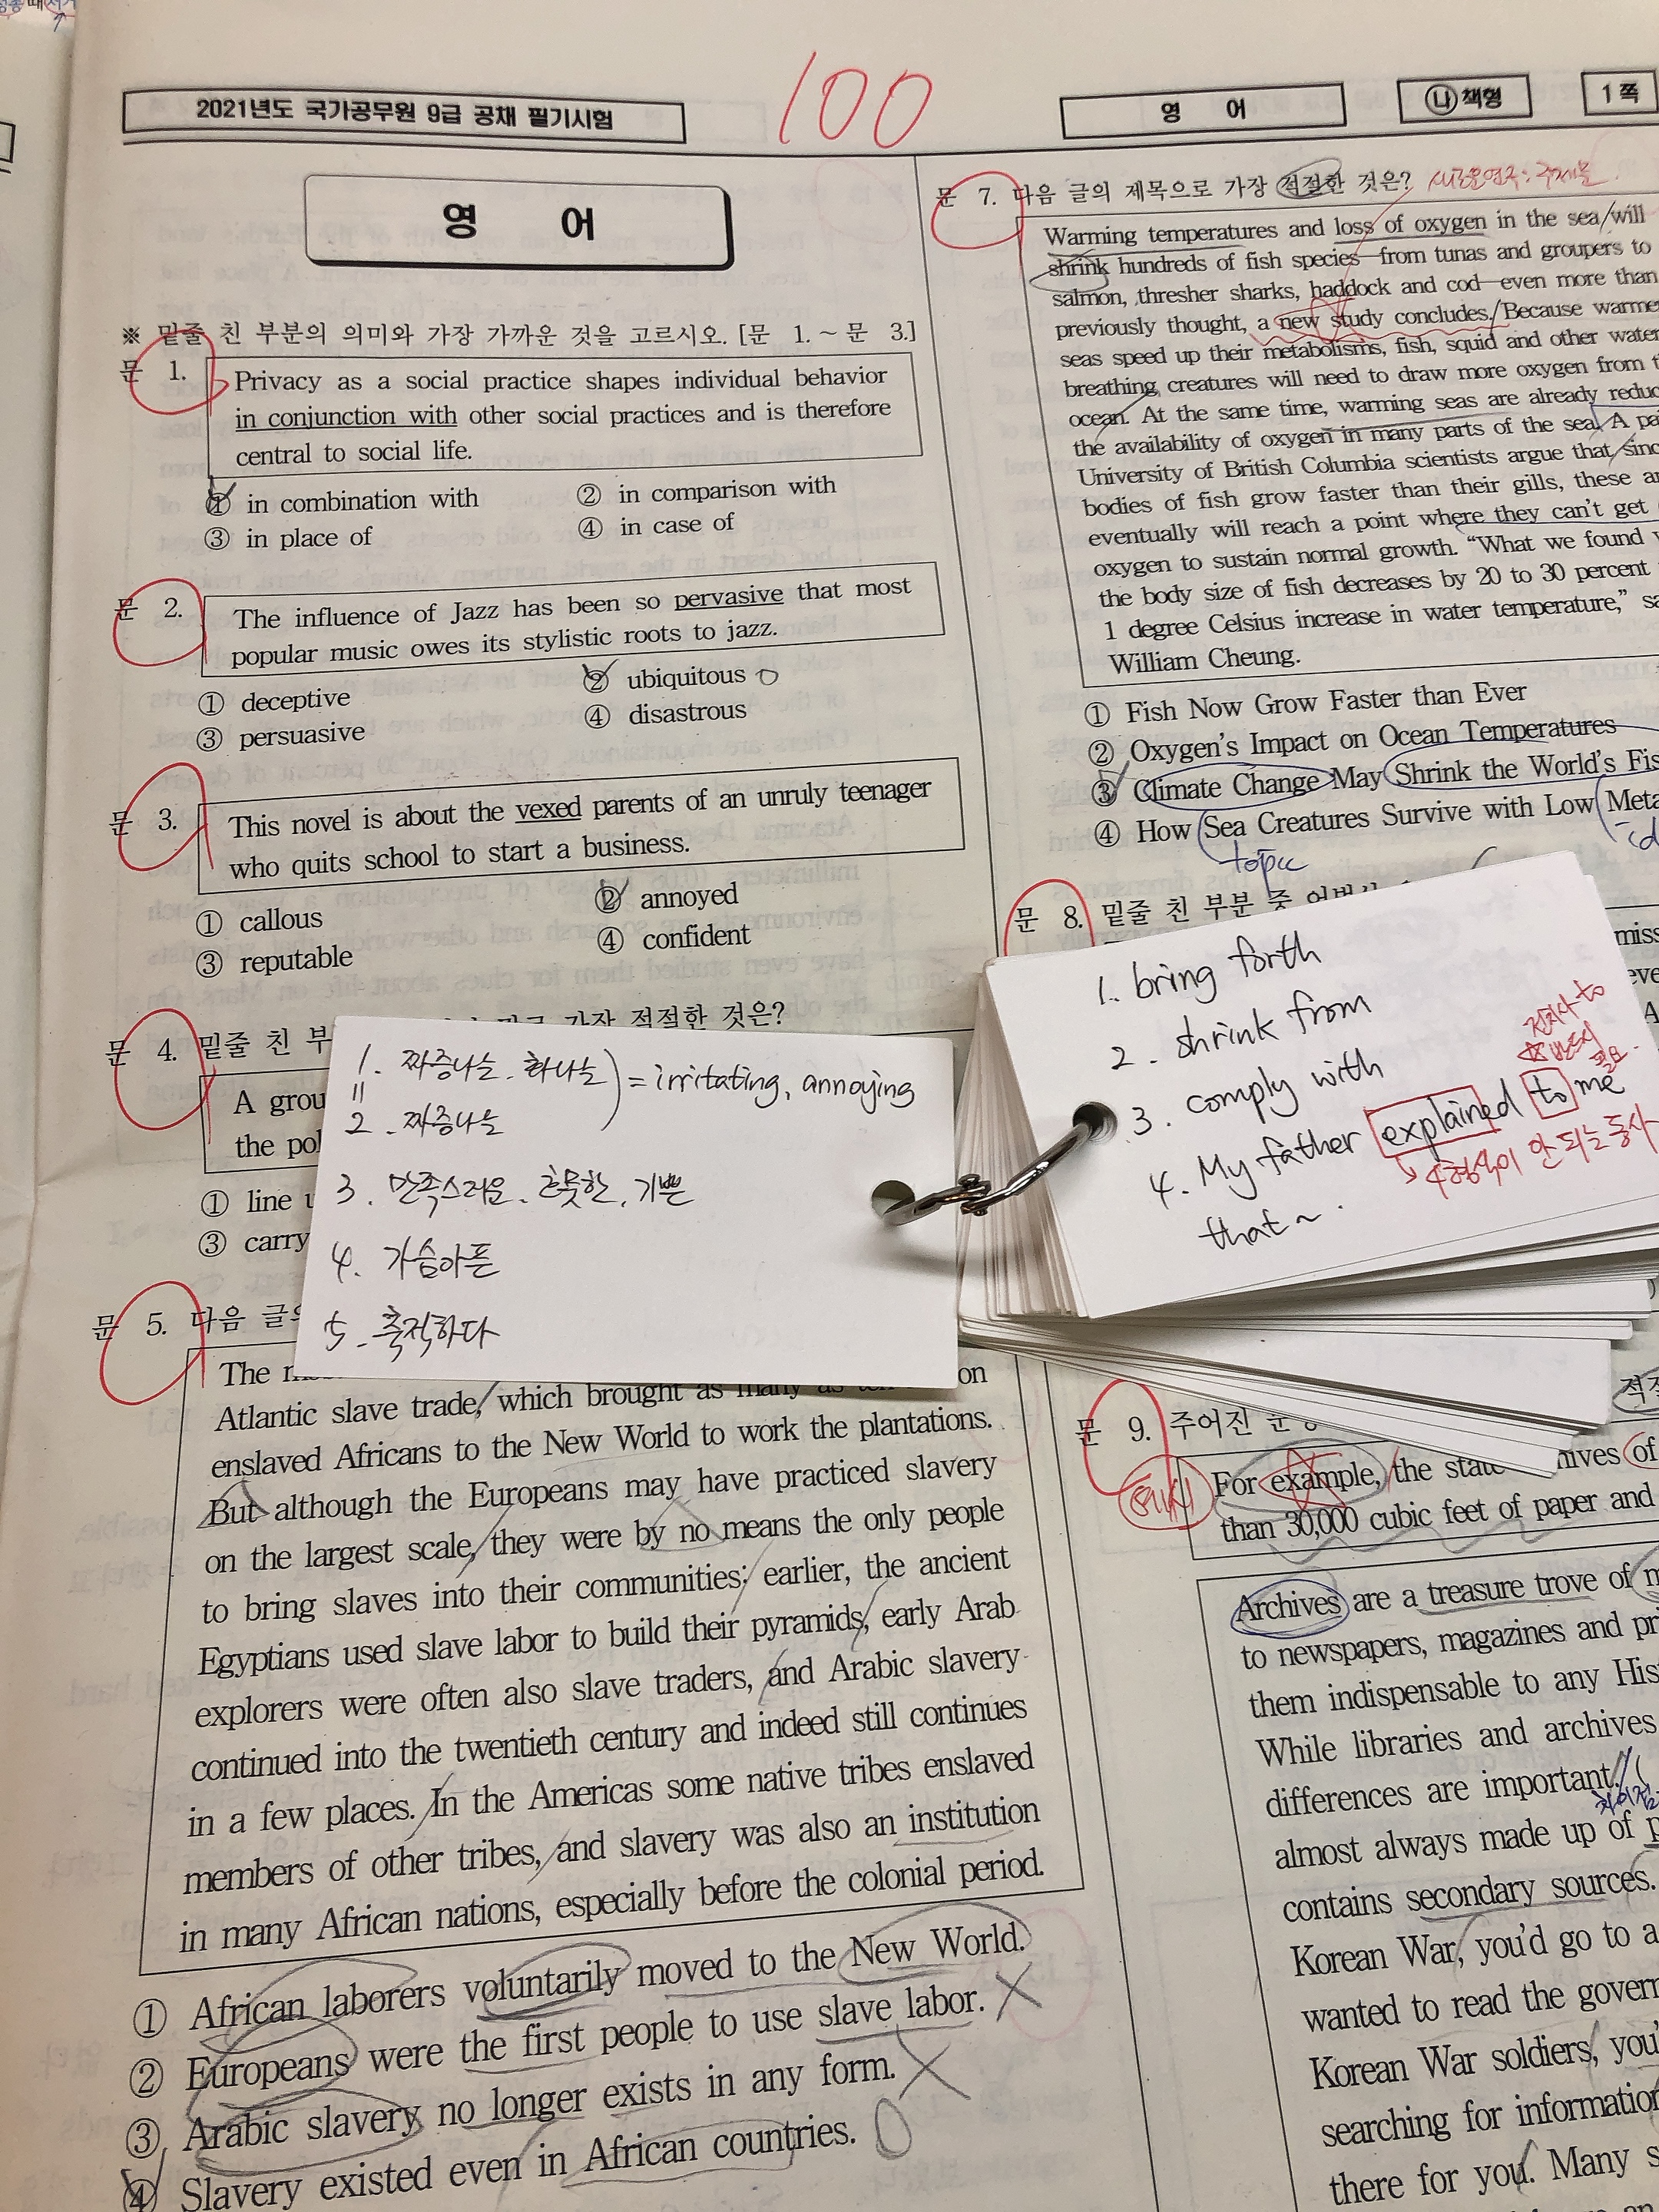 100
2021년도 국가공무원 9급 공채 필기시험
영 어
나 책형
1 쪽
영 어
※ 밑줄 친 부분의 의미와 가장 가까운 것을 고르시오. [문 1. ~ 문 3.]
문 1.
Privacy as a social practice shapes individual behavior
in conjunction with other social practices and is therefore
central to social life.
① in combination with
② in comparison with
③ in place of
④ in case of
문 2.
The influence of Jazz has been so pervasive that most
popular music owes its stylistic roots to jazz.
① deceptive
② ubiquitous
③ persuasive
④ disastrous
문 3.
This novel is about the vexed parents of an unruly teenager
who quits school to start a business.
① callous
② annoyed
③ reputable
④ confident
문 4. 밑줄 친 가장 적절한 것은?
A
the
① line
③ carry
문 5. 다음
The
Atlantic slave trade, which brought as many as
enslaved Africans to the New World to work the plantations.
But although the Europeans may have practiced slavery
on the largest scale, they were by no means the only people
to bring slaves into their communities: earlier, the ancient
Egyptians used slave labor to build their pyramids, early Arab
explorers were often also slave traders, and Arabic slavery
continued into the twentieth century and indeed still continues
in a few places. In the Americas some native tribes enslaved
members of other tribes, and slavery was also an institution
in many African nations, especially before the colonial period.
① African laborers voluntarily moved to the New World.
② Europeans were the first people to use slave labor. X
③ Arabic slavery no longer exists in any form. X
④ Slavery existed even in African countries. O
문 7. 다음 글의 제목으로 가장 적절한 것은?
Warming temperatures and loss of oxygen in the sea will
shrink hundreds of fish species—from tunas and groupers to
salmon, thresher sharks, haddock and cod—even more than
previously thought, a new study concludes. Because
seas speed up their metabolisms, fish, squid and other
breathing creatures will need to draw more oxygen from
ocean. At the same time, warming seas are already
the availability of oxygen in many parts of the sea. A
University of British Columbia scientists argue that
bodies of fish grow faster than their gills, these
eventually will reach a point where they can't get
oxygen to sustain normal growth. “What we found
the body size of fish decreases by 20 to 30 percent
1 degree Celsius increase in water temperature,”
William Cheung.
① Fish Now Grow Faster than Ever
② Oxygen's Impact on Ocean Temperatures
③ Climate Change May Shrink the World's
④ How Sea Creatures Survive with Low
topic
문 8. 밑줄 친 부분 중
1. bring forth
2. shrink from
3. comply with
4. My father explained to me
that ~.
전치사 to
반드시
필요.
4형식이 안 되는 동사
1. 짜증나는, 화나는
2. 짜증나는
= irritating, annoying
3. 만족스러운, 흐뭇한, 기쁜
4. 가슴아픈
5. 축적하다
문 9. 주어진
예시
For example, the state of
than 30,000 cubic feet of paper and
Archives are a treasure trove of
to newspapers, magazines and
them indispensable to any
While libraries and archives
differences are important.
차이점
almost always made up of
contains secondary sources.
Korean War, you'd go to a
wanted to read the
Korean War soldiers,
searching for information
there for you. Many